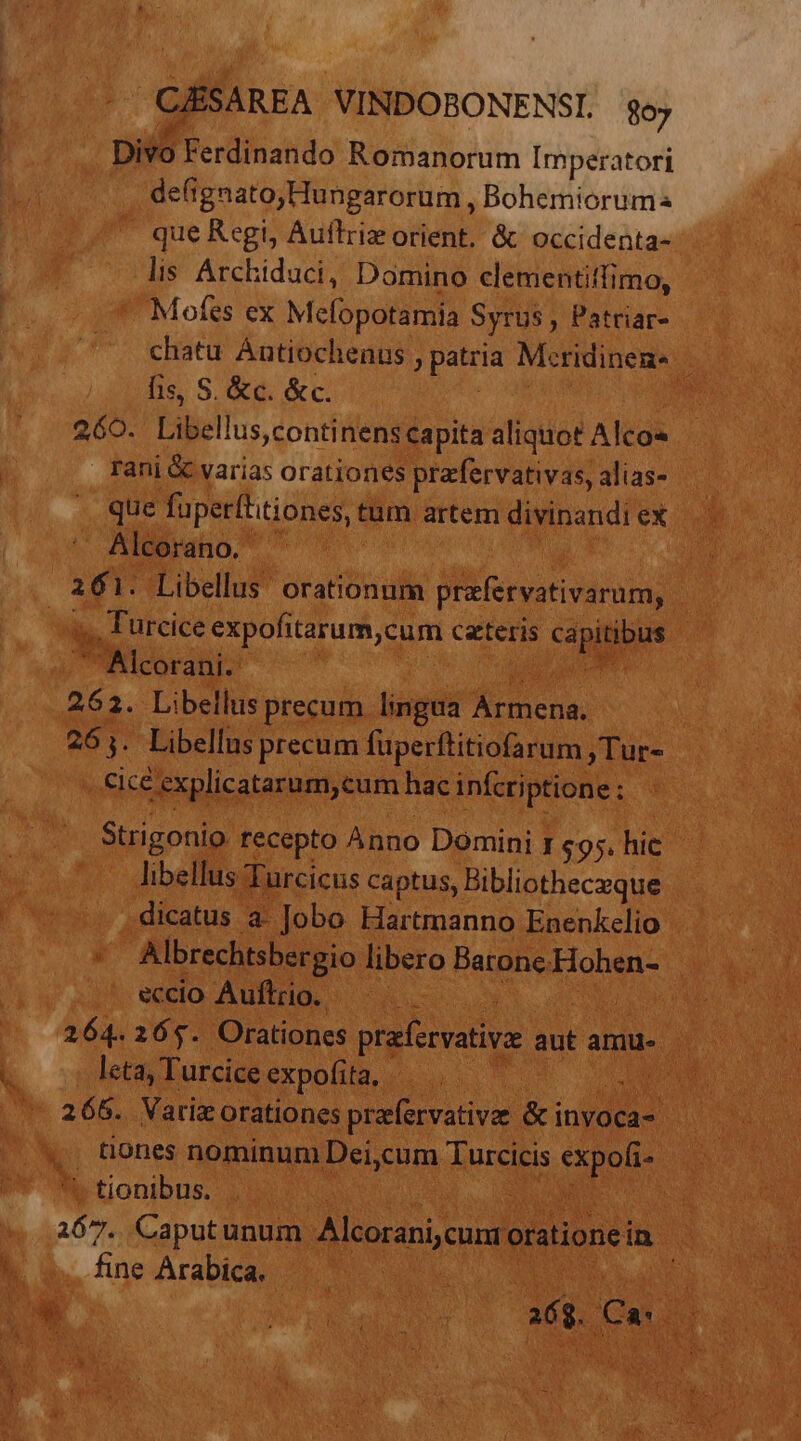 CÆSAREA VINDOBONENSI. 807
Divo Ferdinando Romanorum Imperatori
deſignato,Hungarorum, Bohemiorum-
que Regi, Auſtriæ orient. & occidenta-
lis Archiduci, Domino clementiſſimo,
Moſes ex Meſopotamia Syrus, Patriar-
chatu Antiochenus, patria Meridinen-
ſis, S. &c. &c.
260. Libellus,continens capita aliquot Alco-
rani & varias orationes præſervativas, alias-
que ſuperſtitiones, tum artem divinandi ex
Alcorano.
261. Libellus orationum præſervativarum,
Turcice expoſitarum,cum cæteris capitibus
Alcorani.
262. Libellus precum lingua Armena.
263. Libellus precum ſuperſtitioſarum,Tur-
cice explicatarum,cum hac inſcriptione:
Strigonio recepto Anno Domini 1595. hic
libellus Turcicus captus, Bibliothecæque
dicatus a Jobo Hartmanno Enenkelio
Albrechtsbergio libero Barone Hohen-
eccio Auſtrio.
264.265. Orationes præſervativæ aut amu-
leta, Turcice expoſita.
266. Variæ orationes præſervativæ & invoca-
tiones nominum Dei,cum Turcicis expoſi-
tionibus.
267. Caput unum Alcorani,cum oratione in
fine Arabica.
268. Ca-